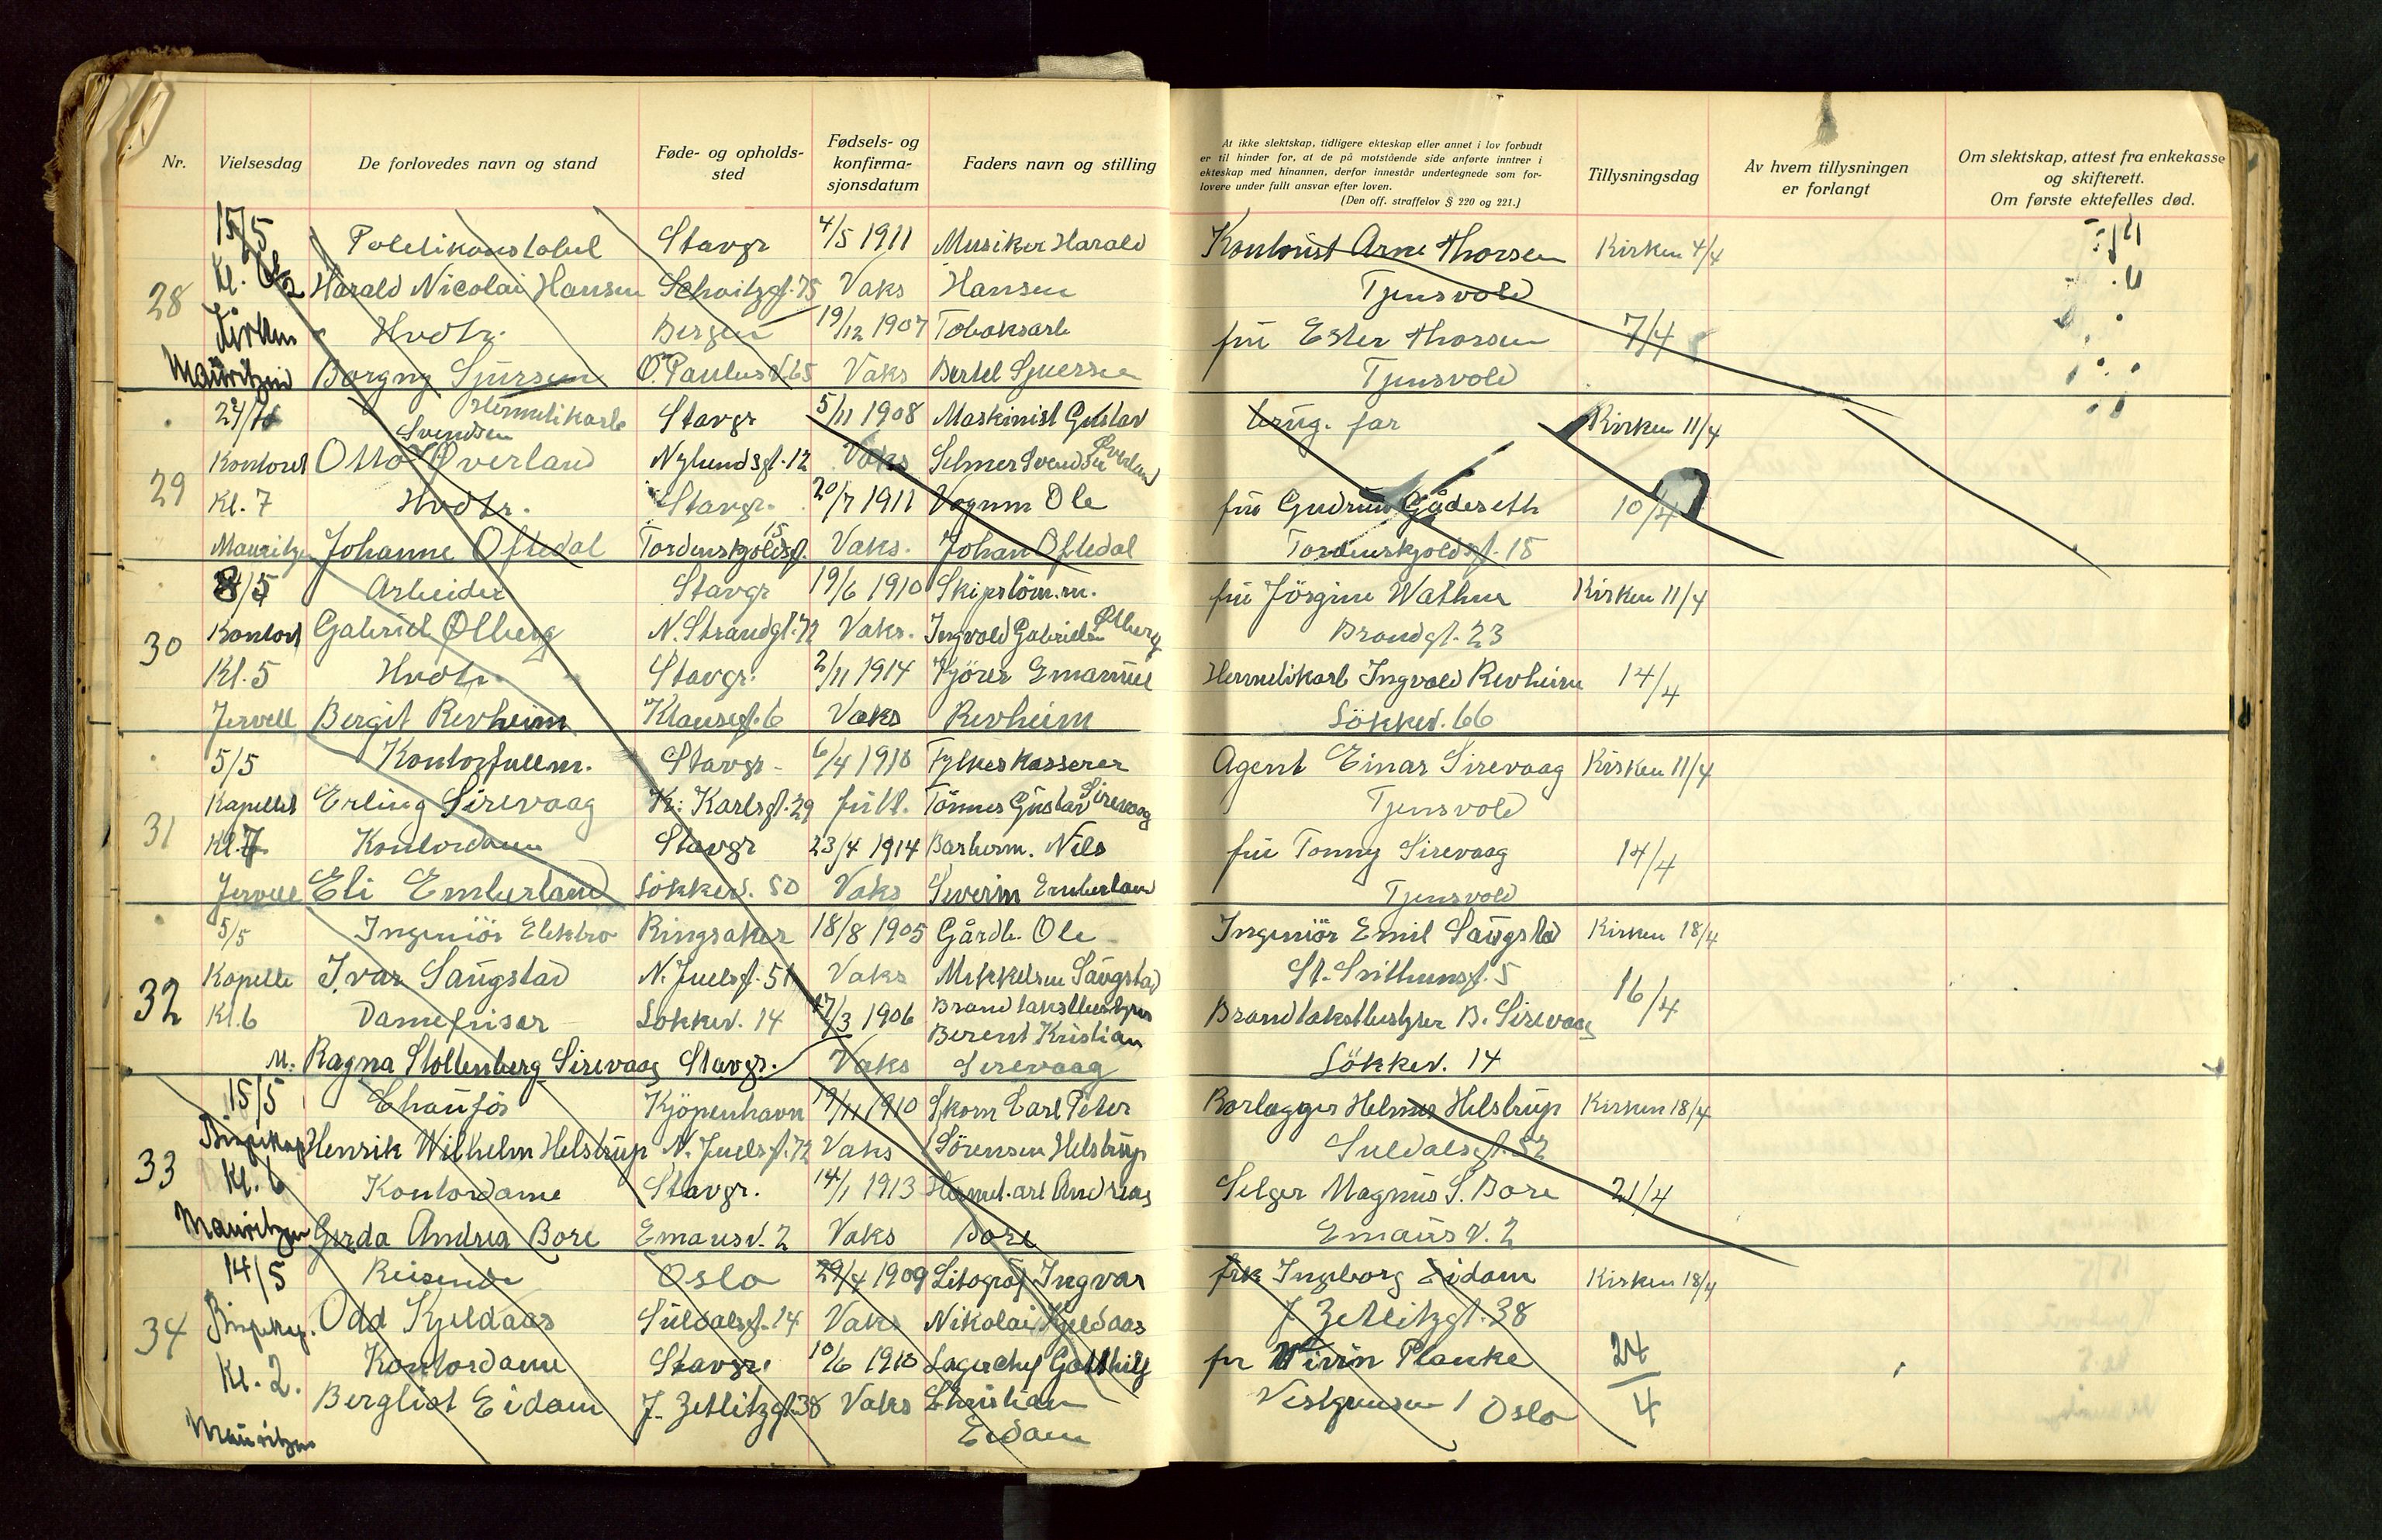 Nr. Vielsesdag De forlovedes navn og stand Føde- og opholds-sted Fødsels- og konfirma-sjonsdatum Faders navn og stilling
At ikke slektskap, tidligere ekteskap eller annet i lov forbudt
er til hinder for, at de på motstående side anførte inntrer i
ekteskap med hinannen, derfor innestår undertegnede som for-
lovere under fullt ansvar efter loven.
(Den off. straffelov § 220 og 221.)
Tillysningsdag
Av hvem tillysningen
er forlangt
Om slektskap, attest fra enkekasse
og skifterett.
Om første ektefelles død.
15/5 Politikonstabel Stavgr 4/5 1911 Musiker Harald Kontorist Arne Thorsen Kirken 4/4
28 Kl. Harald Nicolai Hansen Vaks Hansen Tjensvold
Kirken Hvdtr. Bergen 19/12 1907 Tobaksarb fru Ester Thorsen 7/4
Mauritzen Borgny Sjursen Ø. Paulus v. 65 Vaks Bertel Sjuersen Tjensvold
Hermetikarb Stavgr 5/11 1908 Maskinist Gustav brug. far Kirken 11/4
29 Kontoret Otto Svendsen Øverland Nylundsgt. 12 Vaks Selmer Svendsen Øverland
Kl. 7 Hvdtr. Stavgr. 20/7 1911 Vognm Ole fru Gudrun 10/4
Mauritzen Johanne Oftedal Tordenskjoldsgt. 15 Vaks. Johan Oftedal Tordenskjoldsgt. 15
8/5 Arbeider Stavgr 19/6 1910 Skipstöm.m. fru Jörgine Wathne Kirken 11/4
30 Kontoret Gabriel Ølberg N. Strandgt. 72 Vaks. Ingvald Gabrielsen Ølberg 23
Kl. 5 Hvdtr. Stavgr. 2/11 1914 Kjörer Emanuel Hermetikarb Ingvald Revheim 14/4
Jervell Bergit Revheim Klausegt. 6 Vaks Revheim Lökkev. 66
5/5 Kontorfullm. Stavgr. 6/4 1910 Fylkeskasserer Agent Einar Sirevaag Kirken 11/4
31 Kapellet Erling Sirevaag Kr: Karlsgt. 29 fritt. Tönnes Gustav Sirevaag Tjensvold
Kl. 7 Kontordame Stavgr 23/4 1914 Nils fru Tonny Sirevaag 14/4
Jervell Eli Emberland Lökkev. 50 Vaks Severin Emberland Tjensvold
5/5 Ingeniör Elektro Ringsaker 18/8 1905 Gårdb. Ole Ingeniör Emil Saugstad Kirken 18/4
32 Kapelle Ivar Saugstad N. Juelsgt. 51 Vaks Mikkelsen Saugstad St. Svithunsgt. 5
Kl. 6 Damefrisør Lökkev. 14 17/3 1906 Brandtakstbestyrer Berent Kristian Brandtakstbestyrer B. Sirevaag 16/4
M. Ragna Stoltenberg Sirevaag Stavgr. Vaks Sirevaag Lökkev. 14
15/5 Chauför Kjöpenhavn 19/11 1910 Skom Carl Peter Rørlegger Helmer Helstrup Kirken 18/4
33 Bispekap Henrik Wilhelm Helstrup N. Juelsgt. 72 Vaks Sørensen Helstrup Suldalsgt. 52
Kl. 6 Kontordame Stavgr. 14/1 1913 Hermet.arb Andreas Selger Magnus S. Bore 21/4
Mauritzen Gerda Andrea Bore Emausv. 2 Vaks Bore Emaus v. 2
14/5 Reisende Oslo 29/4 1909 Litograf Ingvar frk Ingeborg Eidam Kirken 18/4
34 Bispekap. Odd Kjeldaas Suldalsgt. 14 Vaks Nikolai Kjeldaas J Zetlitzgt. 38
Kl. 2. Kontordame Stavgr. 10/6 1910 Lagerchef Gotthilf fr Planke 24/4
Mauritzen Bergliot Eidam J. Zetlitzgt. 38 Vaks Christian Eidam 1 Oslo